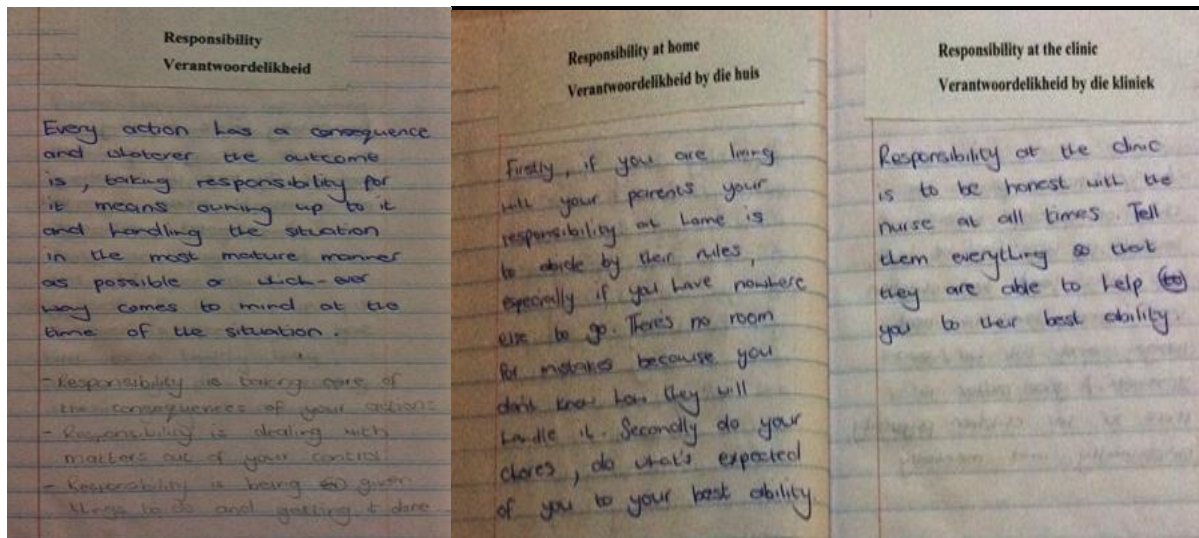 Responsibility
Verantwoordelikheid
Every action has a consequence
and whatever the outcome
is, taking responsibility for
it means owning up to it
and handling the situation
in the most mature manner
as possible or which-ever
way comes to mind at the
time of the situation.
- Responsibility is taking care of
the consequences of your actions
- Responsibility is dealing with
matters out of your control
- Responsibility is being given
things to do and getting it done
Responsibility at home
Verantwoordelikheid by die huis
Firstly, if you are living
with your parents your
responsibility at home is
to abide by their rules,
especially if you have nowhere
else to go. There's no room
for mistakes because you
don't know how they will
handle it. Secondly do your
chores, do what's expected
of you to your best ability.
Responsibility at the clinic
Verantwoordelikheid by die kliniek
Responsibility at the clinic
is to be honest with the
nurse at all times. Tell
them everything so that
they are able to help (to)
you to their best ability.